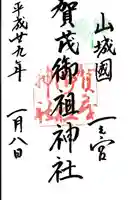 山城國一之宮
賀茂御祖神社
平成廿九年一月八日